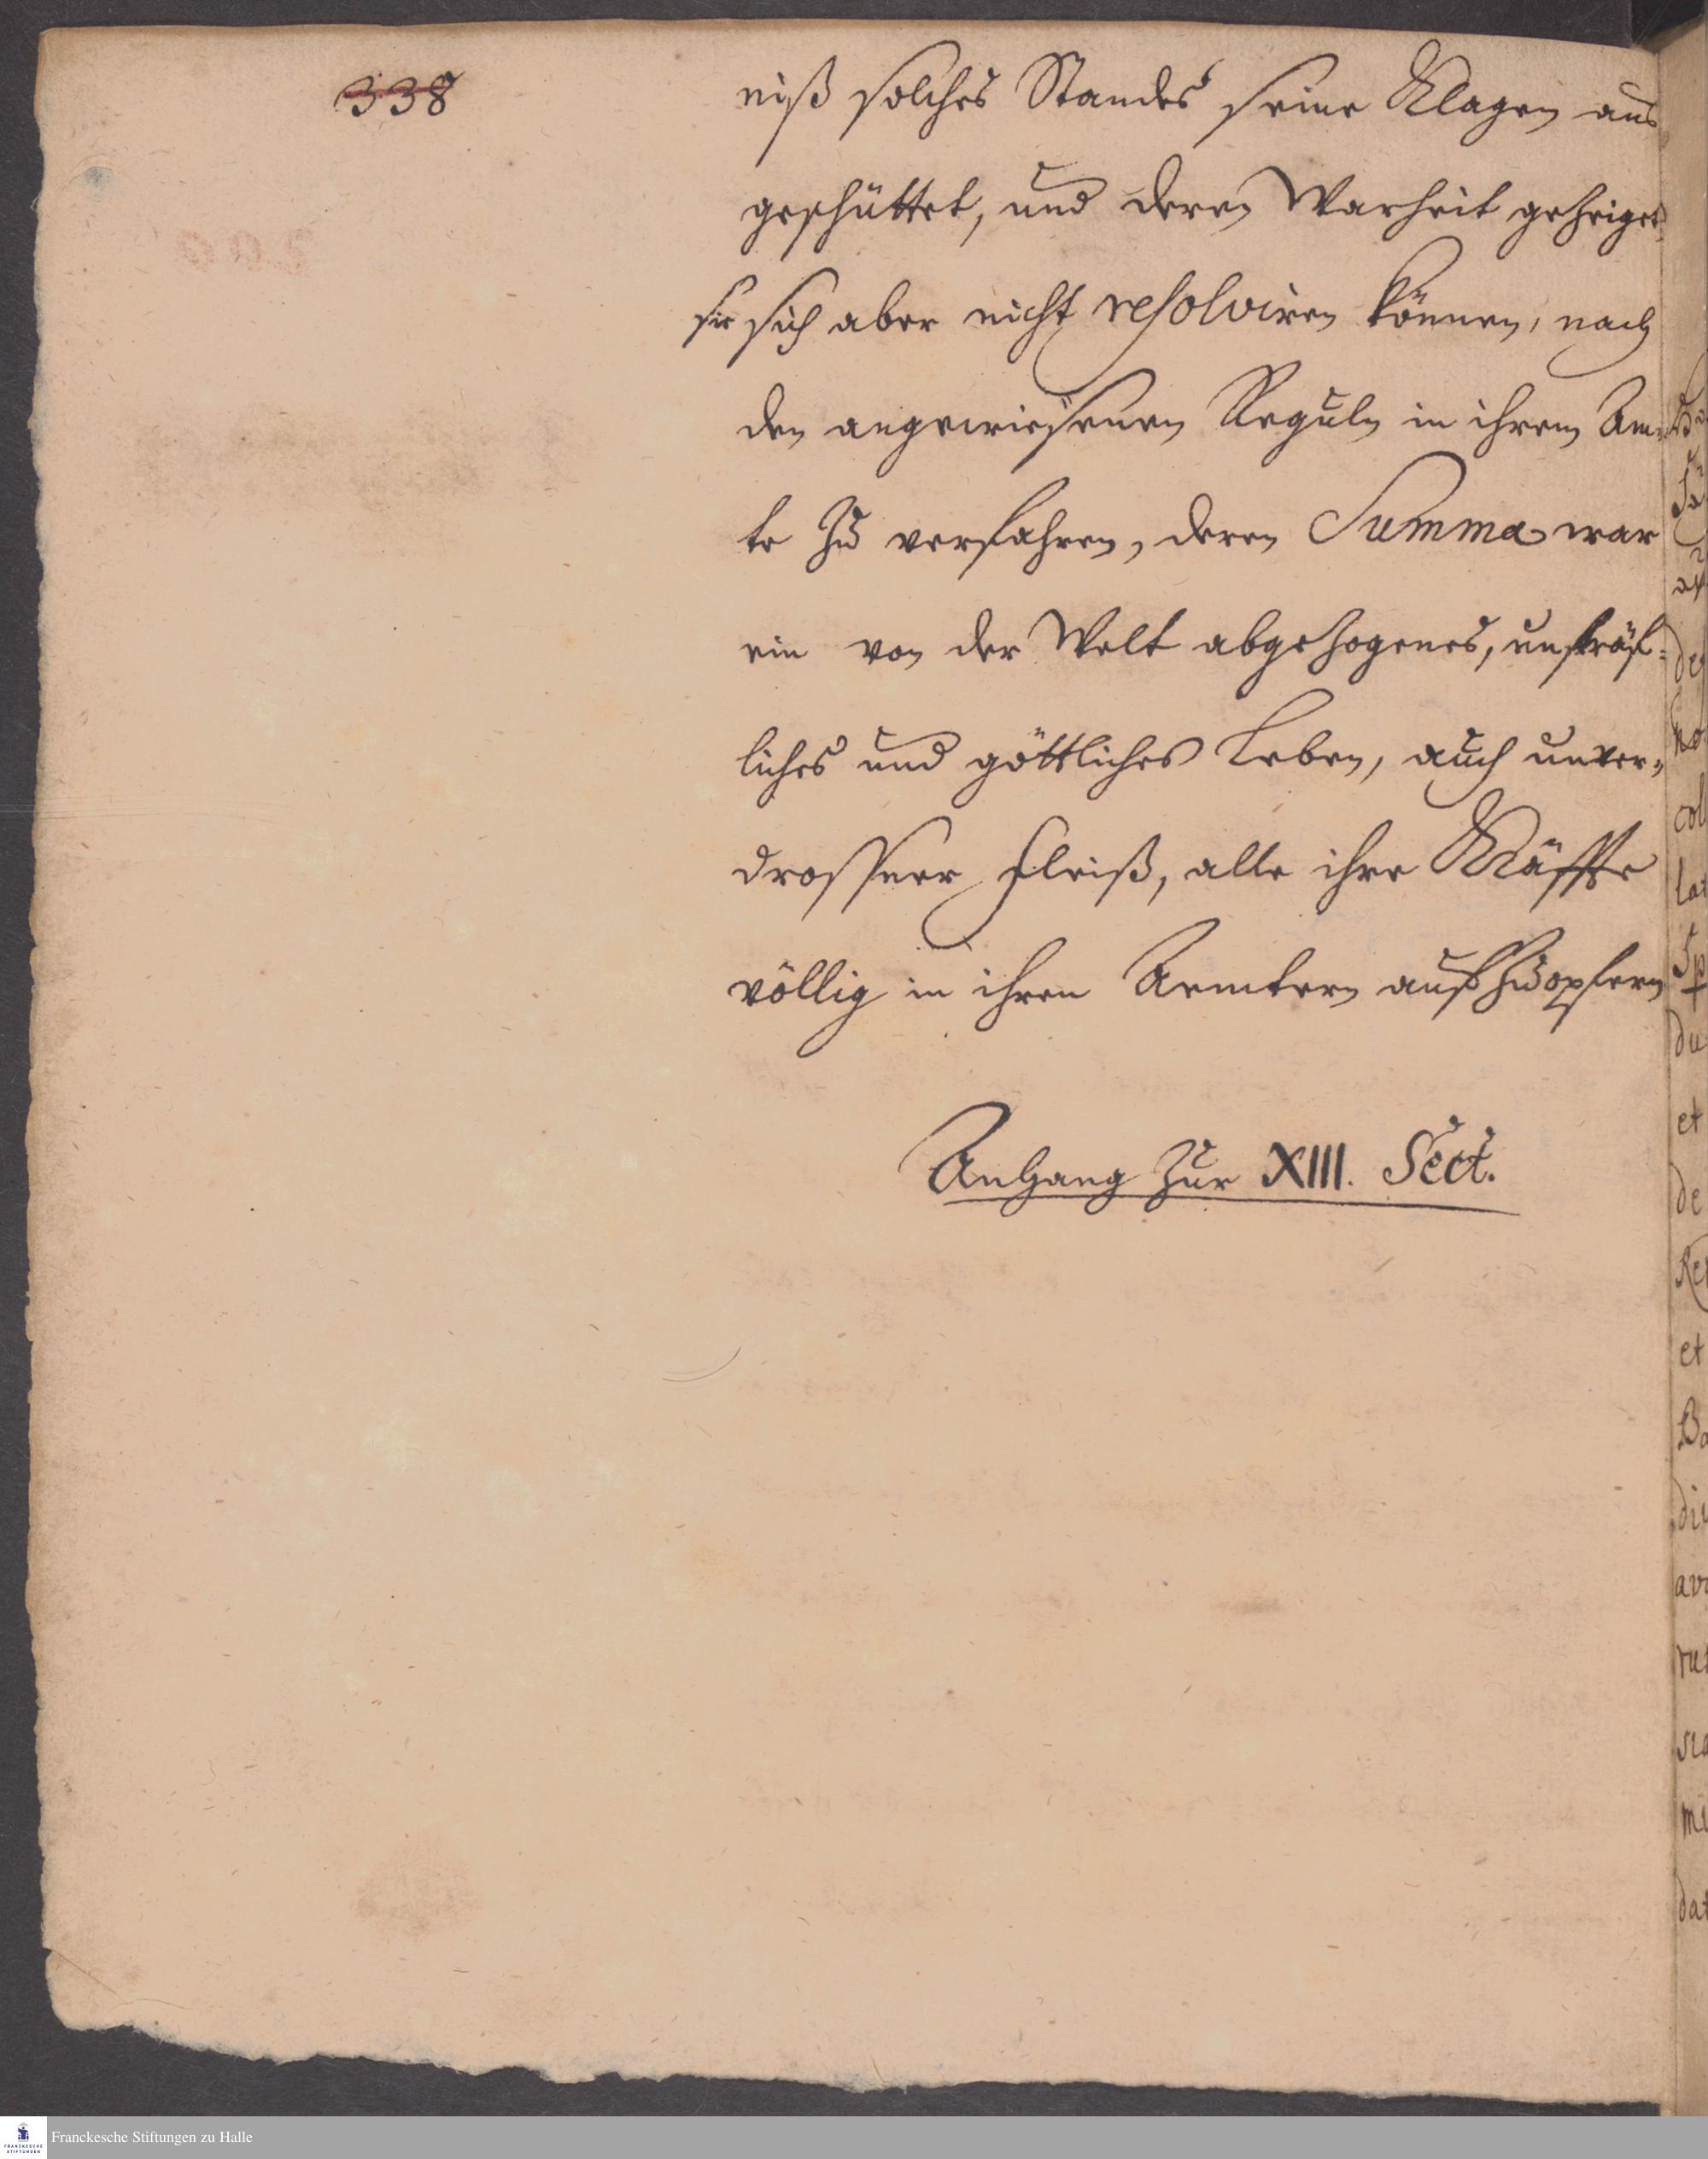 338
niß solches Standes seine Klagen aus
geschüttet, und deren Warheit gezeiget,
sie sich aber nicht resolviren können, nach
den angewiesenen Reguln in ihrem Am-
te zu verfahren, deren Summa war
ein von der Welt abgezogenes, unsträf-
liches und göttliches Leben, auch unver-
droßner Fleiß, alle ihre Kräffte
völlig in ihren Aemtern aufzuopfern
Anhang zur XIII. Sect.
Franckesche Stiftungen zu Halle